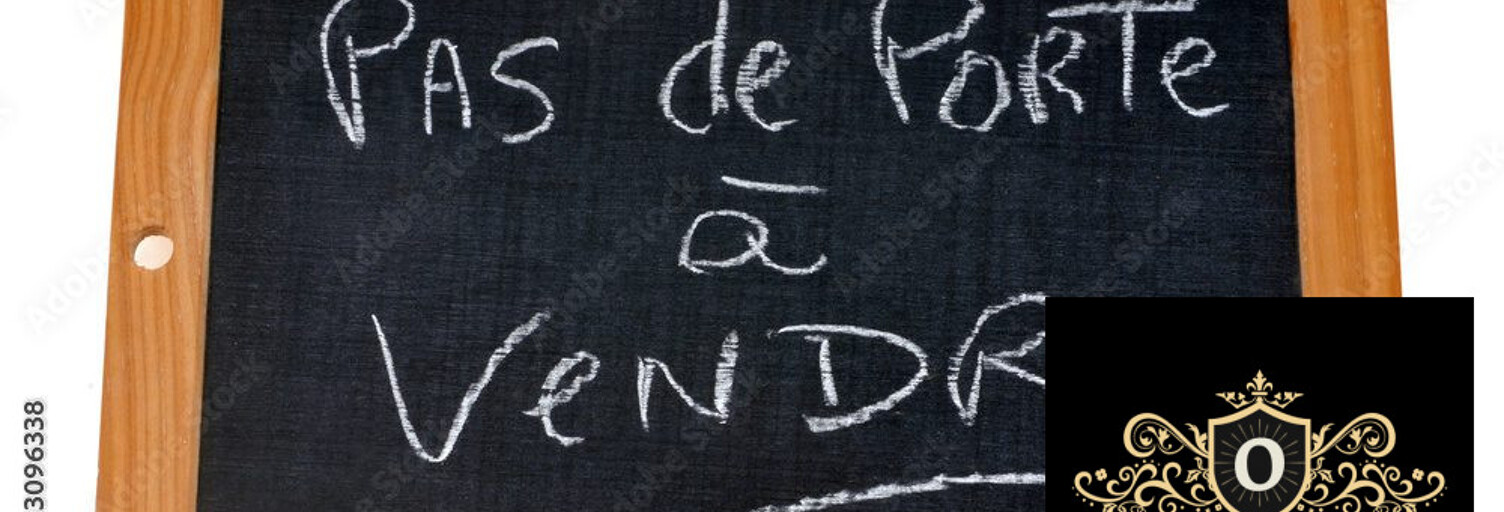 PAS de PORTe
à
VeNDR
O
Adobe Stock
3096338